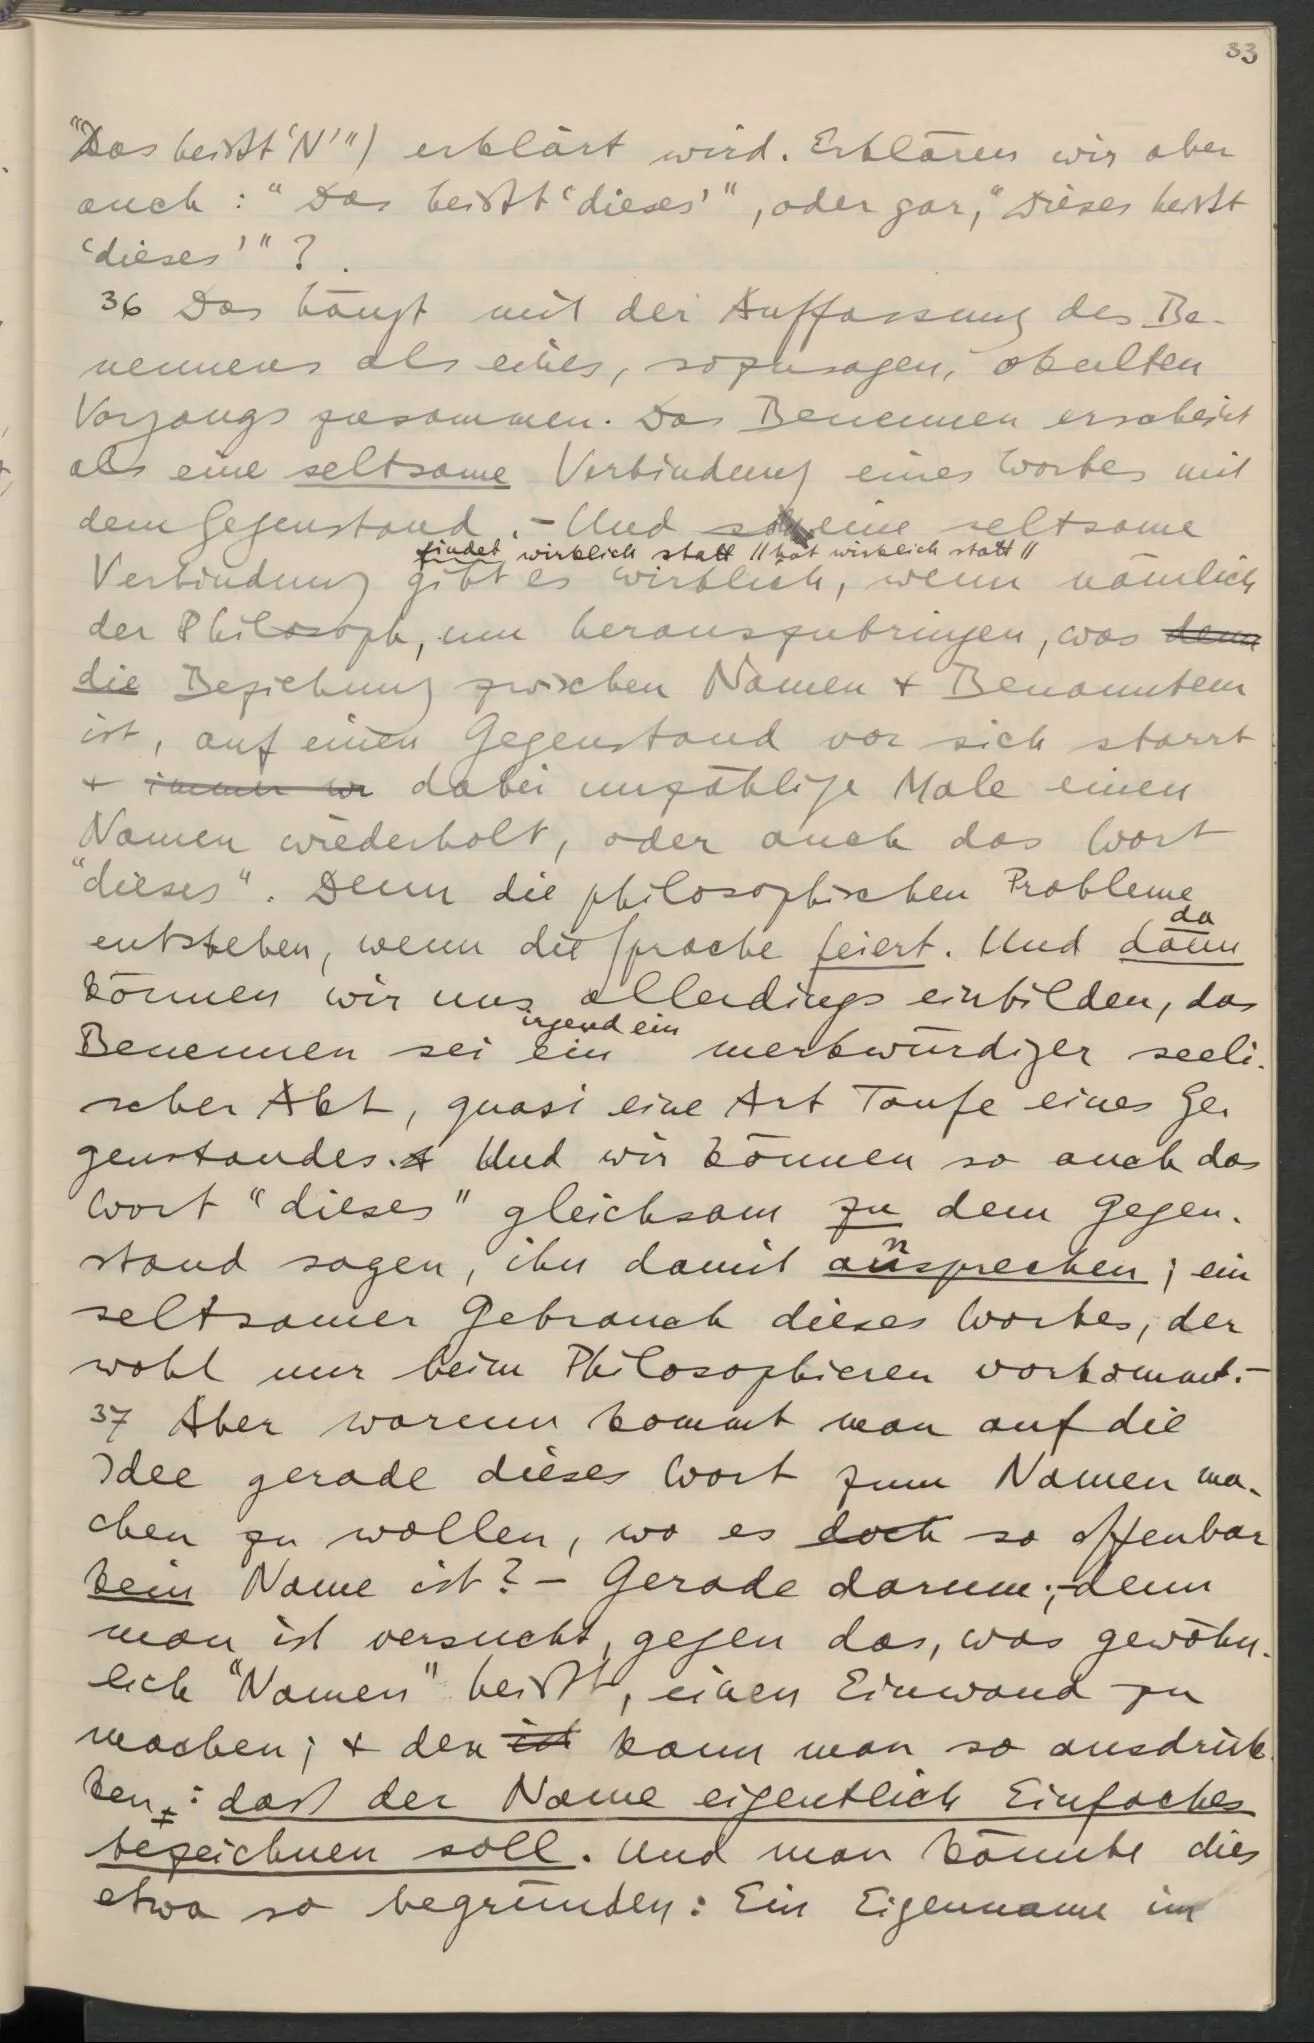 33
"Das heißt 'N'") erklärt wird. Erklären wir aber
auch: "Das heißt 'dieses'", oder gar, "Dieses heißt
'dieses'"?
36 Das hängt mit der Auffassung des Be-
nennens als eines, sozusagen, okkulten
Vorgangs zusammen. Das Benennen erscheint
als eine seltsame Verbindung eines Wortes mit
dem Gegenstand. – Und eine seltsame
findet wirklich statt // hat wirklich statt //
Verbindung gibt es wirklich, wenn nämlich
der Philosoph, um herauszubringen, was denn
die Beziehung zwischen Namen & Benanntem
ist, auf einen Gegenstand vor sich starrt
& immer w dabei unzählige Male einen
Namen wiederholt, oder auch das Wort
"dieses". Denn die philosophischen Probleme
da
entstehen, wenn die Sprache feiert. Und dann
können wir uns allerdings einbilden, das
irgend ein
Benennen sei ein merkwürdiger seeli-
scher Akt, quasi eine Art Taufe eines Ge-
genstandes. Und wir können so auch das
Wort "dieses" gleichsam zu dem Gegen-
stand sagen, ihn damit ansprechen; ein
seltsamer Gebrauch dieses Wortes, der
wohl nur beim Philosophieren vorkommt. –
37 Aber warum kommt man auf die
Idee gerade dieses Wort zum Namen ma-
chen zu wollen, wo es doch so offenbar
kein Name ist? – Gerade darum; – denn
man ist versucht, gegen das, was gewöhn-
lich "Namen" heißt, einen Einwand zu
machen; & den ist kann man so ausdrük-
ken: daß der Name eigentlich Einfaches
bezeichnen soll. Und man könnte dies
etwa so begründen: Ein Eigenname im